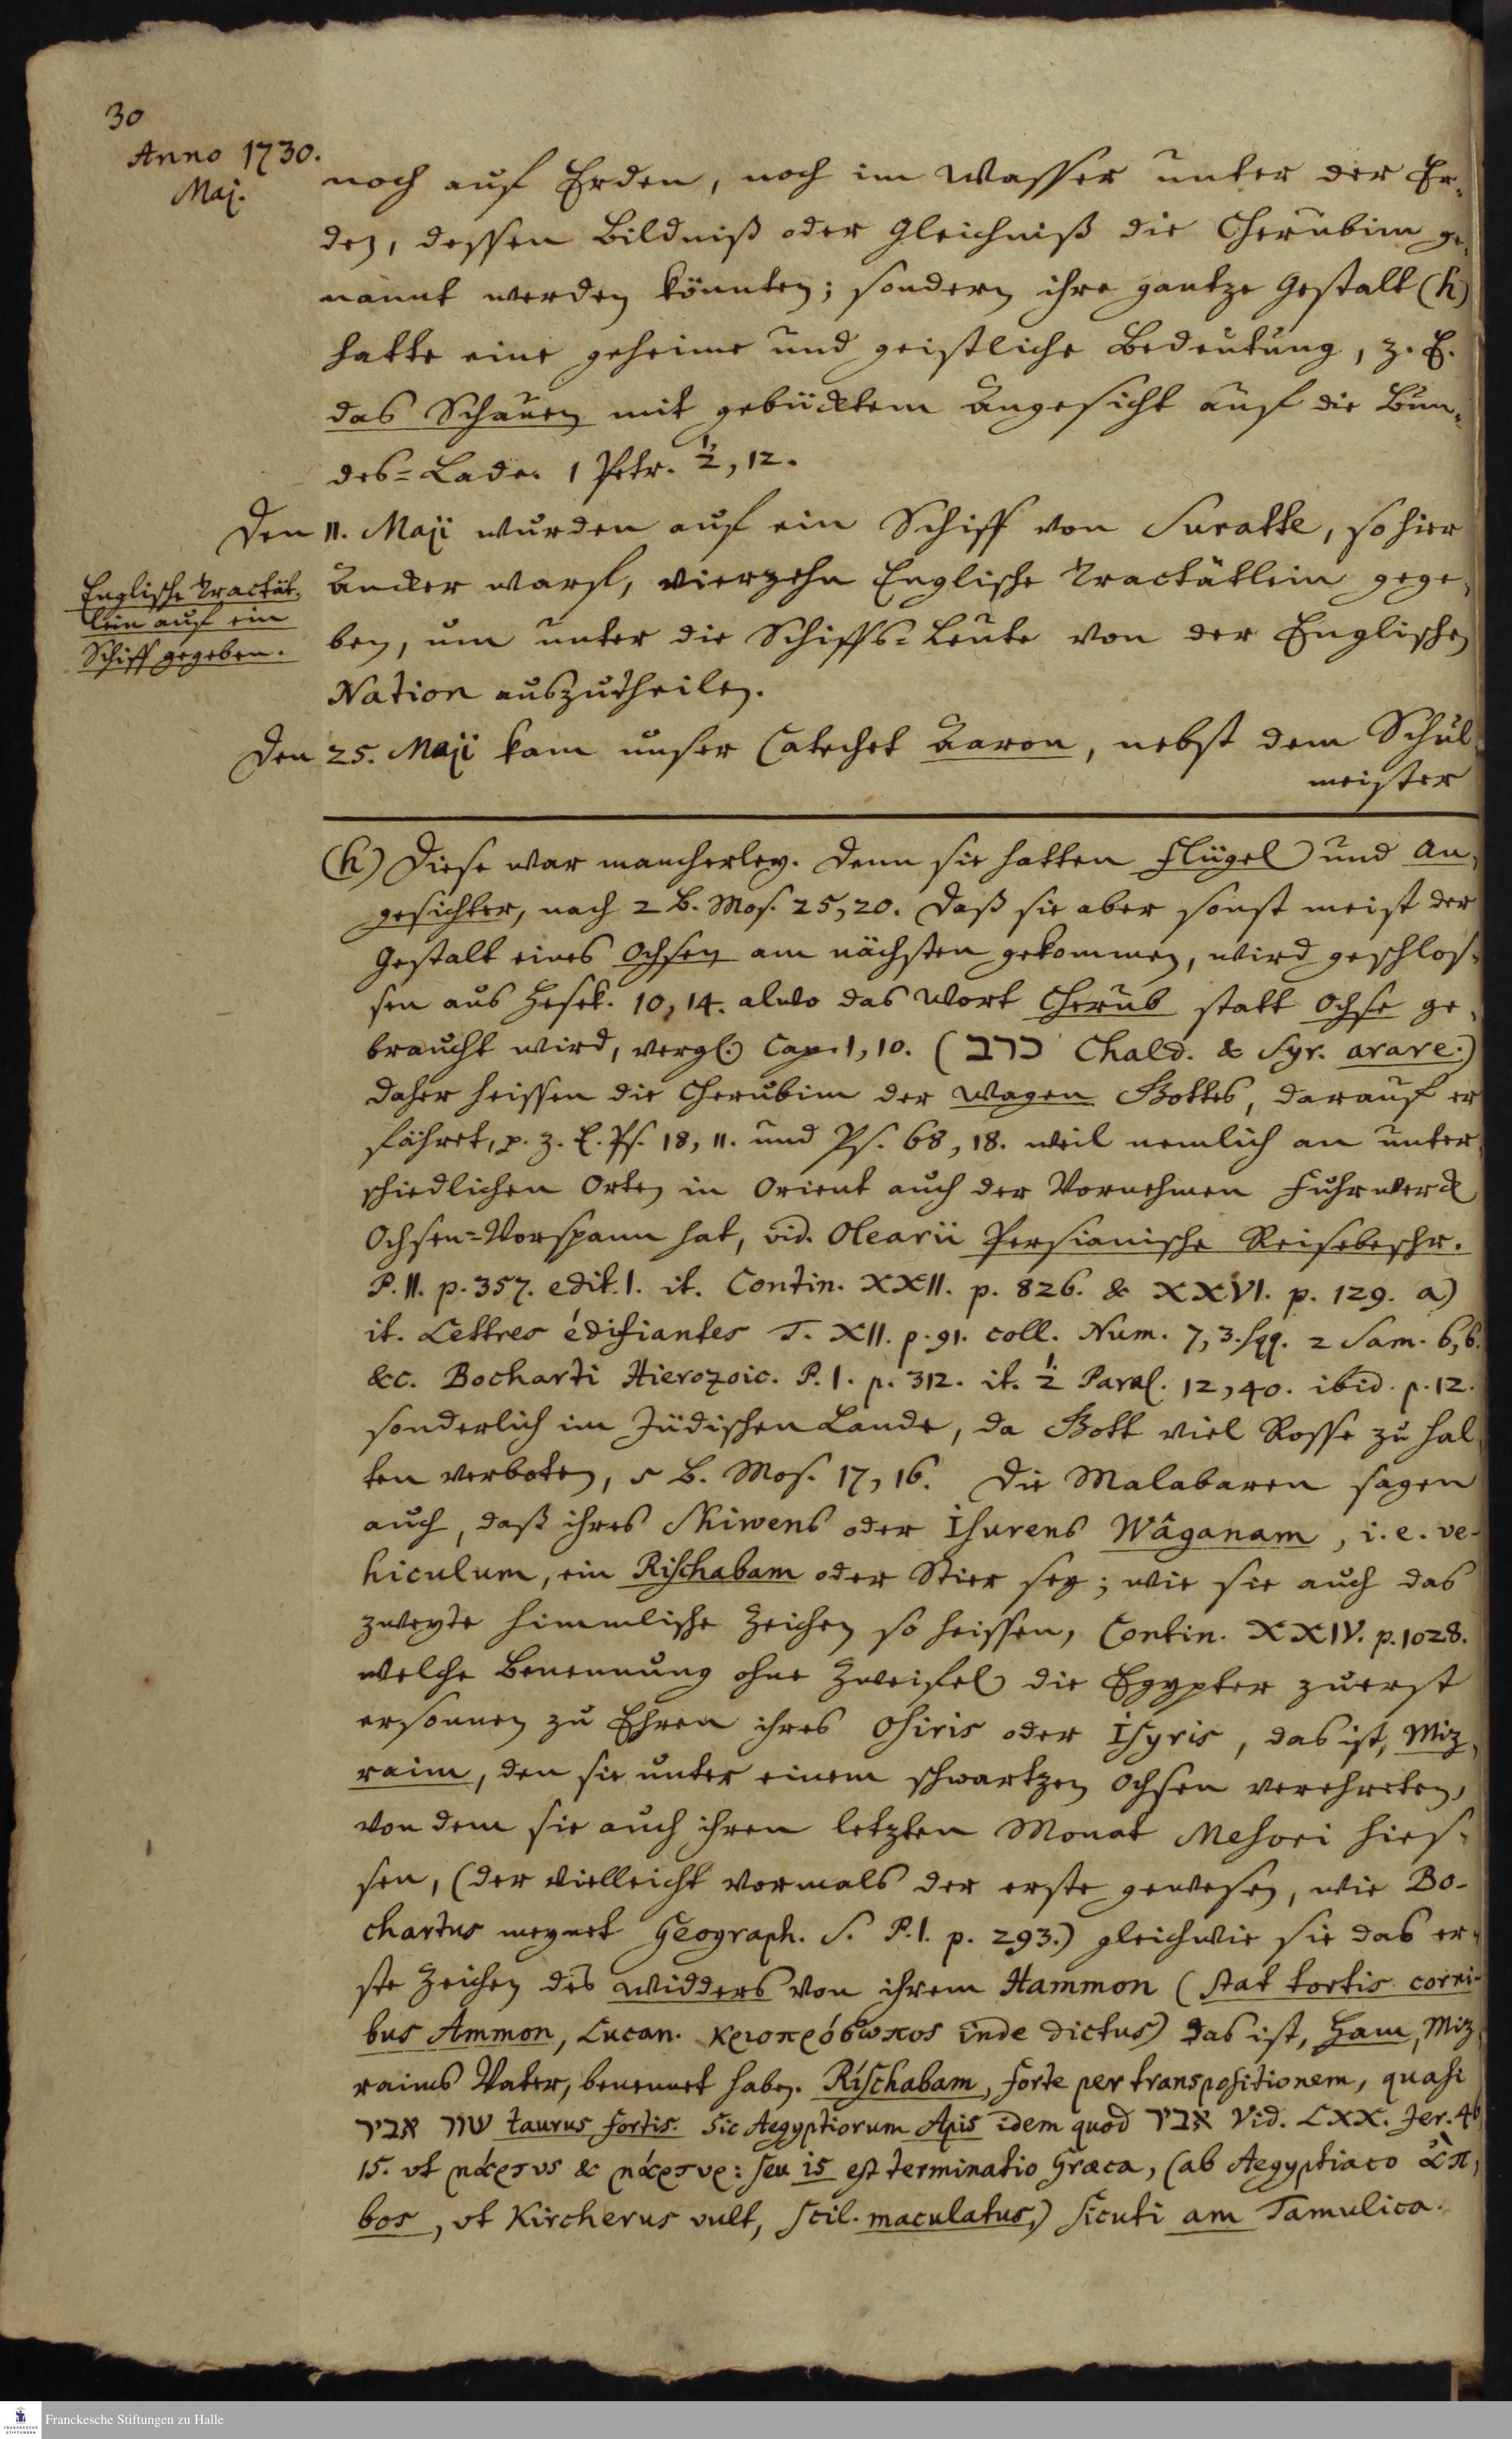 30
Anno 1730.
Maj.
noch auf Erden, noch im Wasser unter der Er-
den, dessen Bildniß oder Gleichniß die Cherubim ge-
nannt werden könnten; sondern ihre gantze Gestalt (h)
hatte eine geheime und geistliche Bedeutung, z. E.
das Schauen mit gebücktem Angesicht auf die Bun-
des-Lade. 1 Petr. 1/2, 12.
Den 11. Maji wurden auf ein Schiff von Suratte, so hier
Ancker warf, vierzehn Englische Tractätlein gege-
ben, um unter die Schiffs-Leute von der Englischen
Nation auszutheilen.
Englische Tractät-
lein auf ein
Schiff gegeben.
Den 25. Maji kam unser Catechet Aaron, nebst dem Schul-
meister
(h) Diese war mancherley. Denn sie hatten Flügel und An-
gesichter, nach 2 B. Mos. 25, 20. Daß sie aber sonst meist der
Gestalt eines Ochsen am nächsten gekommen, wird geschlos-
sen aus Hesek. 10, 14. alwo das Wort Cherub statt Ochse ge-
braucht wird, vergl. Cap. 1, 10. (כרב Chald. & Syr. arare.)
daher heissen die Cherubim der Wagen Gottes, darauf er
fähret, p. z. E. Ps. 18, 11. und Ps. 68, 18. weil nemlich an unter-
schiedlichen Orten in Orient auch der Vornehmen Fuhrwerck
Ochsen-Vorspann hat, vid. Olearii Persianische Reisebeschr.
P. II. p. 357. edit. 1. it. Contin. XXII. p. 826. & XXVI. p. 129. a)
it. Lettres édifiantes T. XII. p. 91. coll. Num. 7, 3. sqq. 2 Sam. 6, 6.
&c. Bocharti Hierozoic. P. I. p. 312. it. 1/2 Paral. 12, 40. ibid. p. 12.
sonderlich im Jüdischen Lande, da Gott viel Rosse zu hal-
ten verboten, 5 B. Mos. 17, 16. Die Malabaren sagen
auch, daß ihres Shiwens oder Isurens Wâganam, i. e. ve-
hiculum, ein Rischabam oder Stier sey; wie sie auch das
zweyte himmlische Zeichen so heissen, Contin. XXIV. p. 1028.
welche Benennung ohne Zweifel die Egypter zuerst
ersonnen zu Ehren ihres Osiris oder Isyris, das ist, Miz-
raim, den sie unter einem schwartzen Ochsen verehreten,
von dem sie auch ihren letzten Monat Mesori hies-
sen, (der vielleicht vormals der erste gewesen, wie Bo-
chartus meynet Geograph. S. P. I. p. 293.) gleichwie sie das er-
ste Zeichen des Widders von ihrem Hammon (stat tortis corni-
bus Ammon, Lucan. κριοπρόσωπος inde dictus) das ist, Ham, Miz-
raims Vater, benennet haben. Rischabam, forte per transpositionem, quasi
שור אביר taurus fortis. Sic Aegyptiorum Apis idem quod אביר Vid. LXX. Jer. 46,
15. ut μάρτυς & μάρτυρ: seu is est terminatio Græca, (ab Aegyptiaco
bos, ut Kircherus vult, scil. maculatus,) sicuti am Tamulica.
Franckesche Stiftungen zu Halle